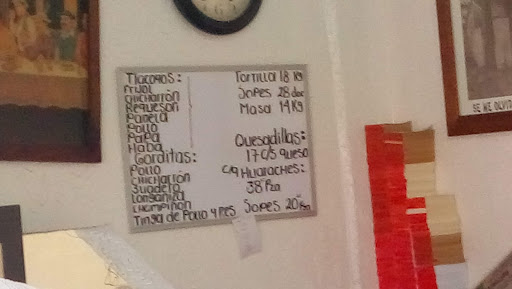 Tlacoyos:
Frijol
Chicharrón
Requeson
Panela
Pollo
Papa
Haba
Gorditas:
Pollo
Chicharrón
Suadero
Longaniza
Champiñon
Tinga de Pollo y Res
Tortilla 18 Kg
Sopes 28 doc
Masa 14 Kg
Quesadillas:
17 c/s queso
c/q Huaraches:
38 Pza
Sopes 20 Pza
SE ME OLVIT